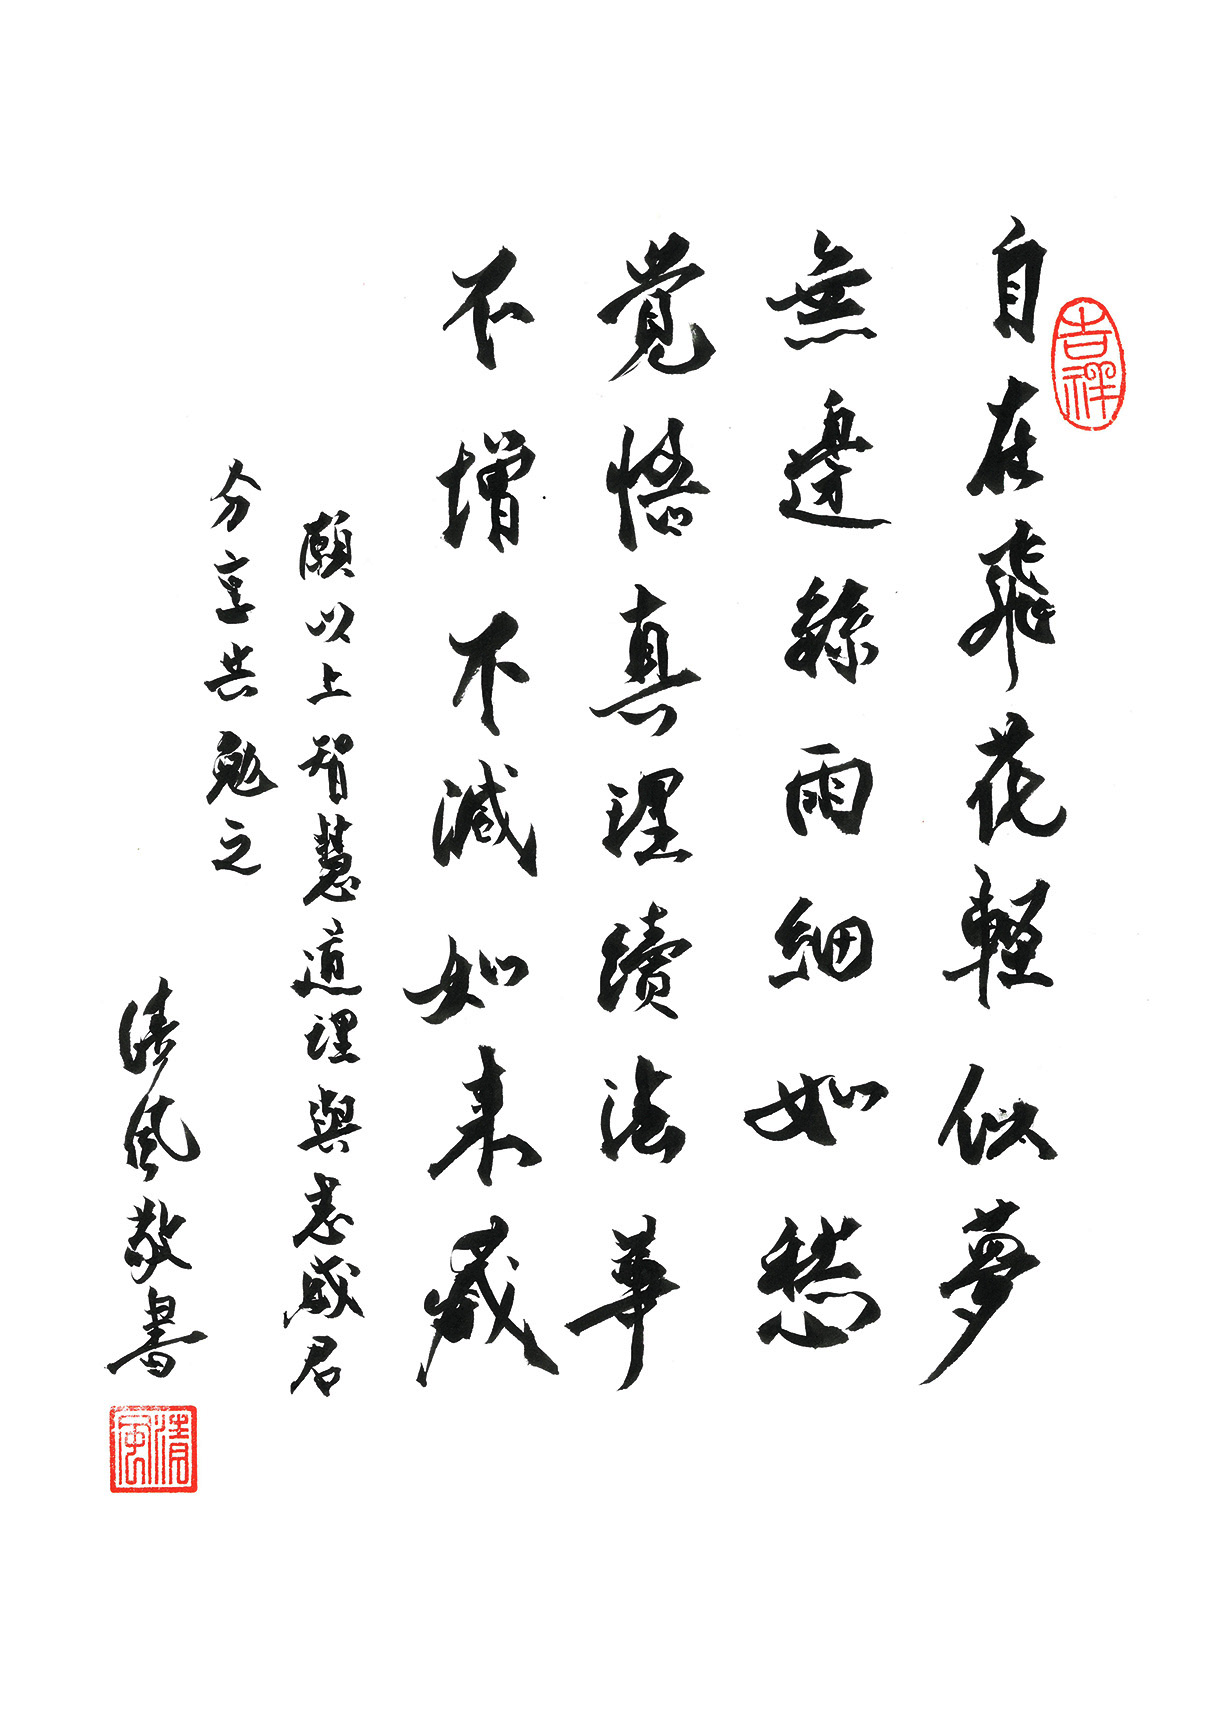 自在飛花輕似夢
無邊絲雨細如愁
覺悟真理續法華
不增不減如來藏
願以上智慧道理與志成君
分享共勉之
清風敬書
吉祥
清風